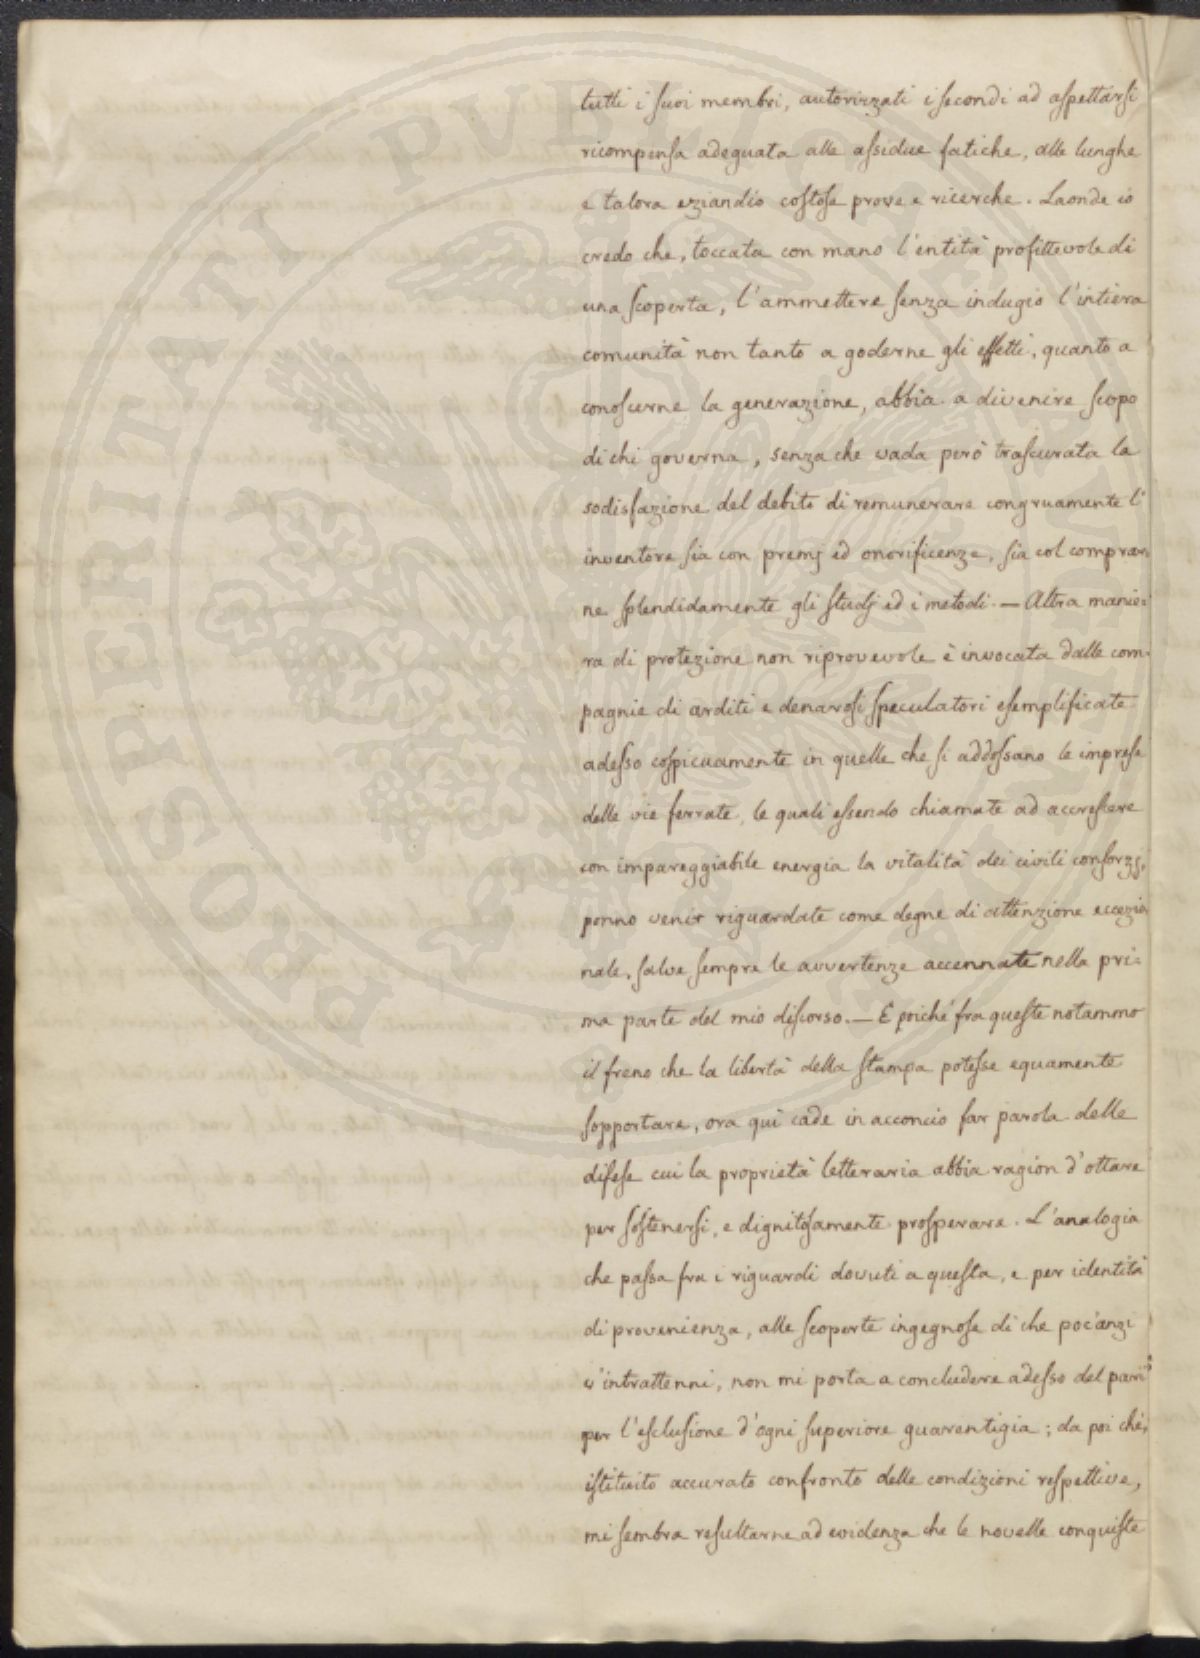 tutti i suoi membri, autorizzati i secondi ad aspettarsi
ricompensa adeguata alle assidue fatiche, alle lunghe
e talora eziandio costose prove e ricerche. Laonde io
credo che, toccata con mano l'entità profittevole di
una scoperta, l'ammettere senza indugio l'intiera
comunità non tanto a goderne gli effetti, quanto a
conoscerne la generazione, abbia a divenire scopo
di chi governa, senza che vada però trascurata la
sodisfazione del debito di remunerare congruamente l'
inventore sia con premj ed onorificenze, sia col comprar-
ne splendidamente gli studj ed i metodi. — Altra manie=
ra di protezione non riprovevole è invocata dalle com-
pagnie di arditi e denarosi speculatori esemplificate
adesso cospicuamente in quelle che si addossano le imprese
delle vie ferrate, le quali essendo chiamate ad accrescere
con impareggiabile energia la vitalità dei civili consorzj,
ponno venir riguardate come degne di attenzione eccezio
nale, salve sempre le avvertenze accennate nella pri=
ma parte del mio discorso. — E poiché fra queste notammo
il freno che la libertà della stampa potesse equamente
sopportare, ora qui cade in acconcio far parola delle
difese cui la proprietà letteraria abbia ragion d'ottare
per sostenersi, e dignitosamente prosperare. L'analogia
che passa fra i riguardi dovuti a questa, e per identità
di provenienza, alle scoperte ingegnose di che poc'anzi
v'intrattenni, non mi porta a concludere adesso del pari
per l'esclusione d'ogni superiore guarentigia; da poi ché,
istituito accurato confronto delle condizioni respettive,
mi sembra resultarne ad evidenza che le novelle conquiste
PROSPERITATI PUBLICAE